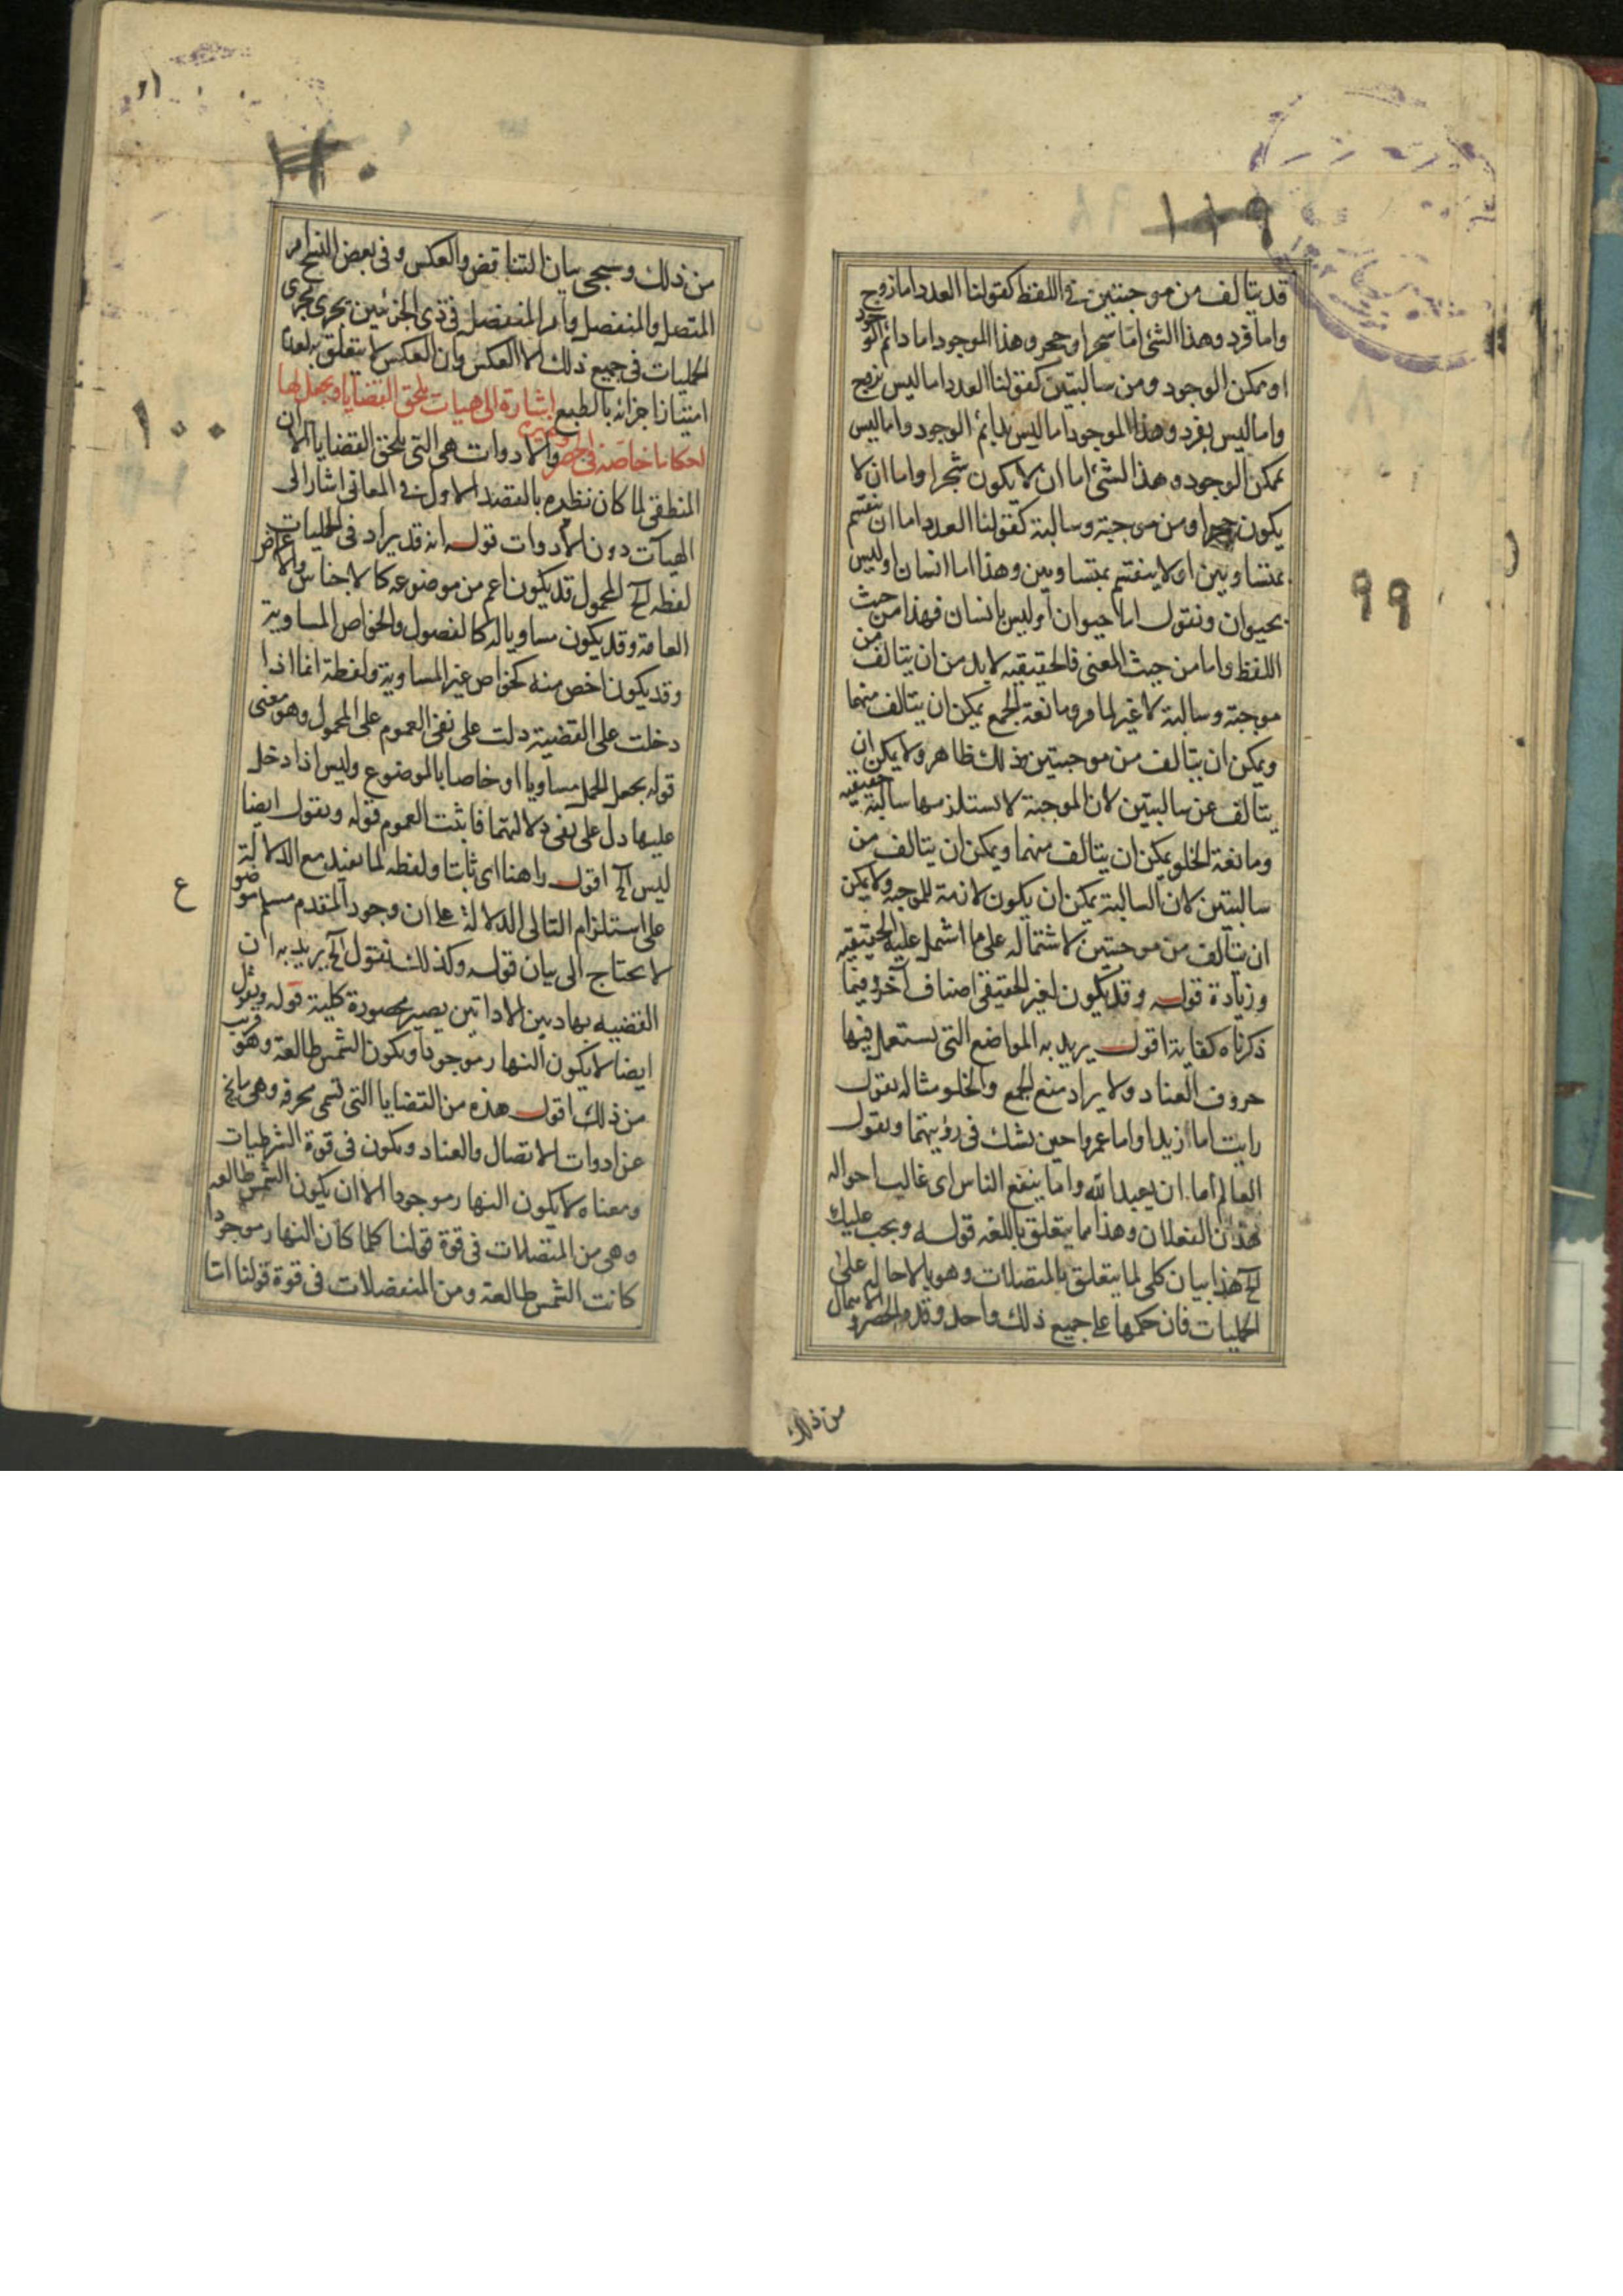 ١١٩
قد يتالف من موجبتين فى اللفظ كقولنا العدد اما زوج
واما فرد وهذا الشئ اما شجر او حجر وهذا الموجود اما دائم الوجود
او ممكن الوجود ومن سالبتين كقولنا العدد اما ليس بزوج
واما ليس بفرد وهذا الموجود اما ليس بدائم الوجود واما ليس
بممكن الوجود وهذا الشئ اما ان لا يكون شجرا واما ان لا
يكون حجرا ومن موجبة وسالبة كقولنا العدد اما ان ينقسم
بمتساويين او لا ينقسم بمتساويين وهذا اما انسان او ليس
بحيوان ونقول اما حيوان او ليس بانسان فهذا من حيث
اللفظ واما من حيث المعنى فالحقيقيه لا بد من ان يتالف من
موجبة وسالبة لا غير لما مر ومانعة الجمع يمكن ان يتالف منهما
ويمكن ان يتالف من موجبتين وذلك ظاهر ولا يمكن ان
يتالف عن سالبتين لان الموجبة لا تستلزمها سالبة حقيقيه
ومانعة الخلو يمكن ان يتالف منهما ويمكن ان يتالف من
سالبتين لان السالبة يمكن ان يكون لازمة للموجبه ولا يمكن
ان يتالف من موجبتين لاشتماله على ما اشتمل عليه الحقيقيه
وزيادة قوله وقد يكون لغير الحقيقى اصناف اخر وفيما
ذكرناه كفاية اقول يريد به المواضع التى تستعمل فيها
حروف العناد ولا يراد منع الجمع والخلو مثاله نقول
رايت اما زيدا واما عمروا حين تشك فى رؤيتهما ويقول
العالم اما ان يعبد الله واما ينفع الناس اى غالب احواله
هذان الفعلان وهذا مما يتعلق باللغه قوله ويجب عليك
الخ هذا بيان كلى لما يتعلق بالمتصلات وهو بالاحالة على
الحمليات فان حكمها فى جميع ذلك واحد وقد مر الحصر والاهمال
من ذلك
٩٩
من ذلك وسيجى بيان التناقض والعكس وفى بعض النسخ امر
المتصل والمنفصل وامر المنفصل فى ذى الجزئين يجرى مجرى
الحمليات فى جميع ذلك الا العكس فان العكس لا يتعلق به لعدم
امتياز اجزائه بالطبع اشارة الى هيات تلحق القضايا ويجعل لها
احكاما خاصة فى الحصر وغيره والادوات هى التى تلحق القضايا الا ان
المنطقى لما كان نظره بالقصد الاول فى المعانى اشار الى
الهيآت دون الادوات قوله انه قد يراد فى الحمليات
لفظه الخ المحمول قد يكون اعم من موضوعه كالاجناس والاعراض
العامة وقد يكون مساويا له كالفصول والخواص المساوية
وقد يكون اخص منه كخواص غير المساوية ولفظة انما اذا
دخلت على القضية دلت على نفى العموم على المحمول وهو معنى
قوله يجعل الحمل مساويا او خاصا بالموضوع وليس اذا دخل
عليها دل على نفى دلالتهما فاثبت العموم قوله ويقول ايضا
ليس الخ اقول راهنا اى ثابتا ولفظه لما يفيد مع الدلالة
على استلزام التالى الدلالة على ان وجود المقدم مسلم موضوع
لا يحتاج الى بيان قوله وكذلك نقول الخ يريد به ان
القضيه بهاديين الاداتين يصير محصورة كلية قوله ونقول
ايضا لا يكون النهار موجودا ويكون الشمس طالعة وهو قريب
من ذلك اقول هذه من القضايا التى تسمى محرفه وهى ما يخ
عن ادوات الاتصال والعناد ويكون فى قوة الشرطيات
ومعناه لا يكون النهار موجودا الا ان يكون الشمس طالعه
وهى من المتصلات فى قوة قولنا كلما كان النهار موجودا
كانت الشمس طالعة ومن المنفصلات فى قوة قولنا اما
١٠٠
ع